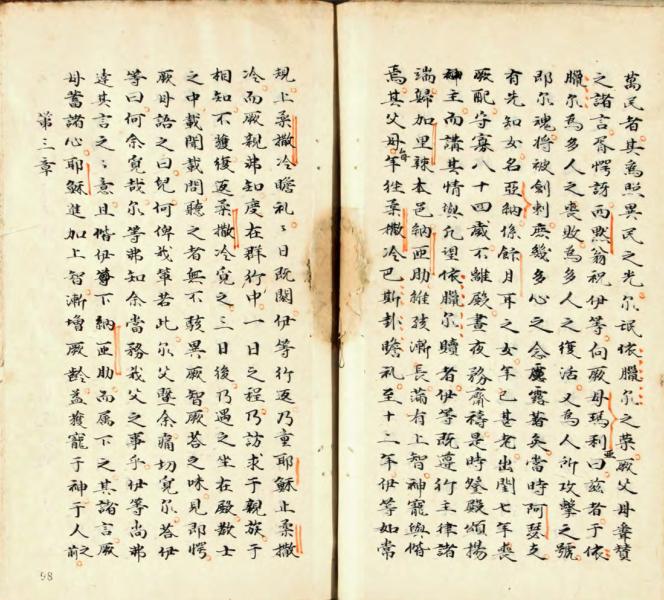 萬民者其為照異民之光尔民依臘尔之榮厥父母竒賛
之諸言胥愕訝而黙翁祝伊等向厥母瑪利亞曰兹者于依
臘尔為多人之喪敗為多人之復活又為人所攻擊之號
即尔魂将被劍刺庶幾多心之念慮露著矣當時阿瑟支
有先知女名亞納係餘月耳之女年已甚老出閨七年喪
厥配守寡八十四歲不離殿晝夜務齋禱是時登殿頌揚
神主而講其情與凢望依臘尔贖者伊等既遵行主律諸
端婦加里辣本邑納匝肋維孩漸長滿有上智神寵與偕
焉其父母每年徃柔撒冷巴斯卦瞻礼至十二年伊等如常
規上柔撒冷瞻礼〻日既闋伊等行返乃童耶穌止柔撒
冷而厥親弗知度在群行中一日之程乃訪求于親族于
相知不獲復返柔撒冷覓之三日後乃遇之坐在殿教士
之中載聞載問聽之者無不駭異厥智厥荅之味見即愕
厥母語之曰兒何俾我等若此尔父曁余痛切覓尔荅伊
等曰何余覓哉尔等弗知余當務我父之事乎伊等尚弗
達其言之〻意且偕伊等下納匝肋而属下之其諸言厥
母蓄諸心耶穌進加上智漸增厥齡益獲寵于神于人之前
第三章
98